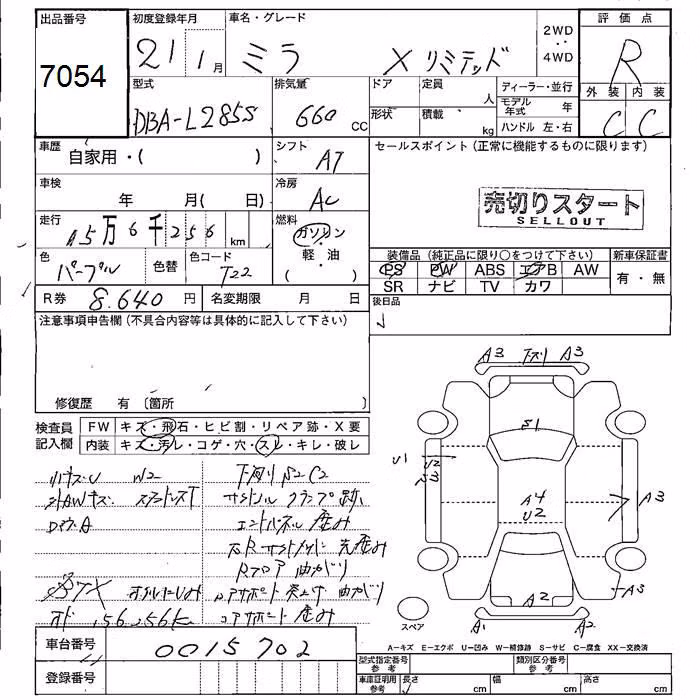 出品番号 初度登録年月 車名・グレード 2WD 4WD 評価点
7054 21 1月 ミラ Xリミテッド R
型式 排気量 ドア 定員 人 ディーラー・並行 外装 内装
DBA-L285S 660 CC 形状 積載 kg モデル年式 年 C C
ハンドル 左・右
車歴 自家用・( ) シフト AT セールスポイント (正常に機能するものに限ります)
車検 年 月( 日) 冷房 AC 売切りスタート
SELLOUT
走行 A5万6千256km 燃料 ガソリン
軽・油
( )
色 パープル 色替 色コード T22 装備品 (純正品に限り○をつけて下さい) 新車保証書
PS PW ABS エアB AW 有・無
SR ナビ TV カワ
R券 8.640円 名変期限 月 日 後日品
注意事項申告欄 (不具合内容等は具体的に記入して下さい)
修復歴 有 〔箇所
検査員記入欄 FW キズ・飛石・ヒビ割・リペア跡・X要
内装 キズ・汚レ・コゲ・穴・スレ・キレ・破レ
A3 下スリ A3
S1
U1 U2 A4 U2 A3
A2 A3
A1 A2
スペア
W2 下回り S2C2
クランプ跡
歪み
曲がり
コアサポート 歪み
オド 156256K
A=キズ E=エクボ U=凹み W=補修跡 S=サビ C=腐食 XX=交換済
車台番号 0015702
登録番号
型式指定番号 参考 類別区分番号 参考
車庫証明用 参考 長さ cm 幅 cm 高さ cm